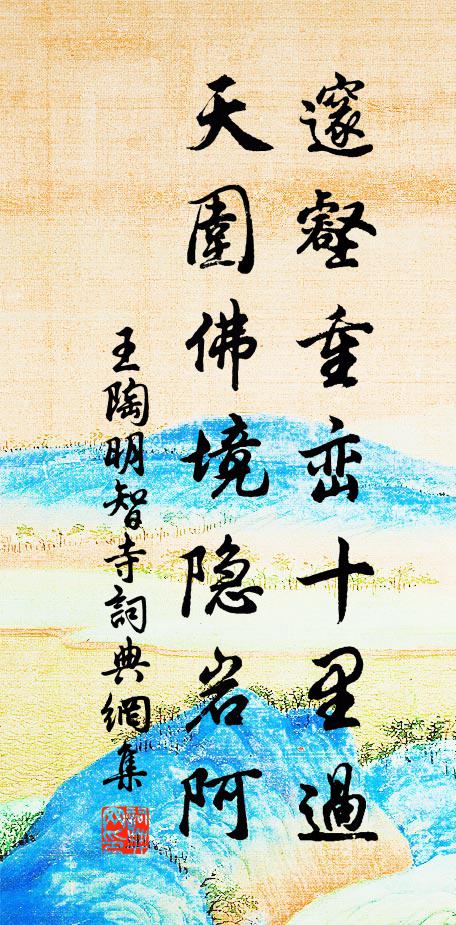 邃壑重峦十里過
天圍佛境隐岩阿
王陶明智寺詞典網集